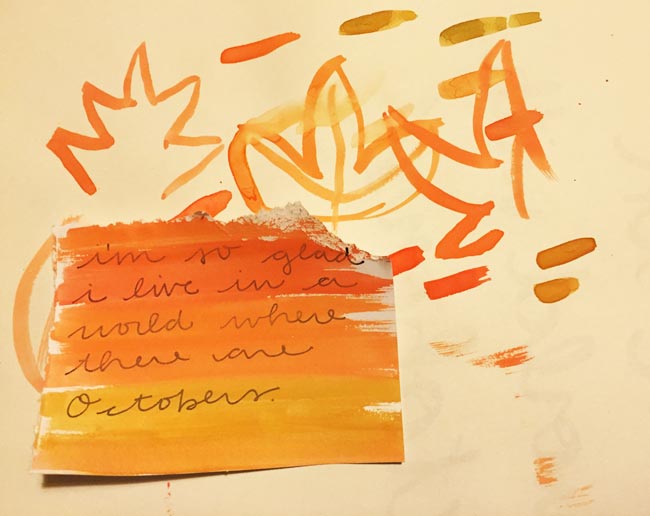 i'm so glad
i live in a
world where
there are
Octobers.